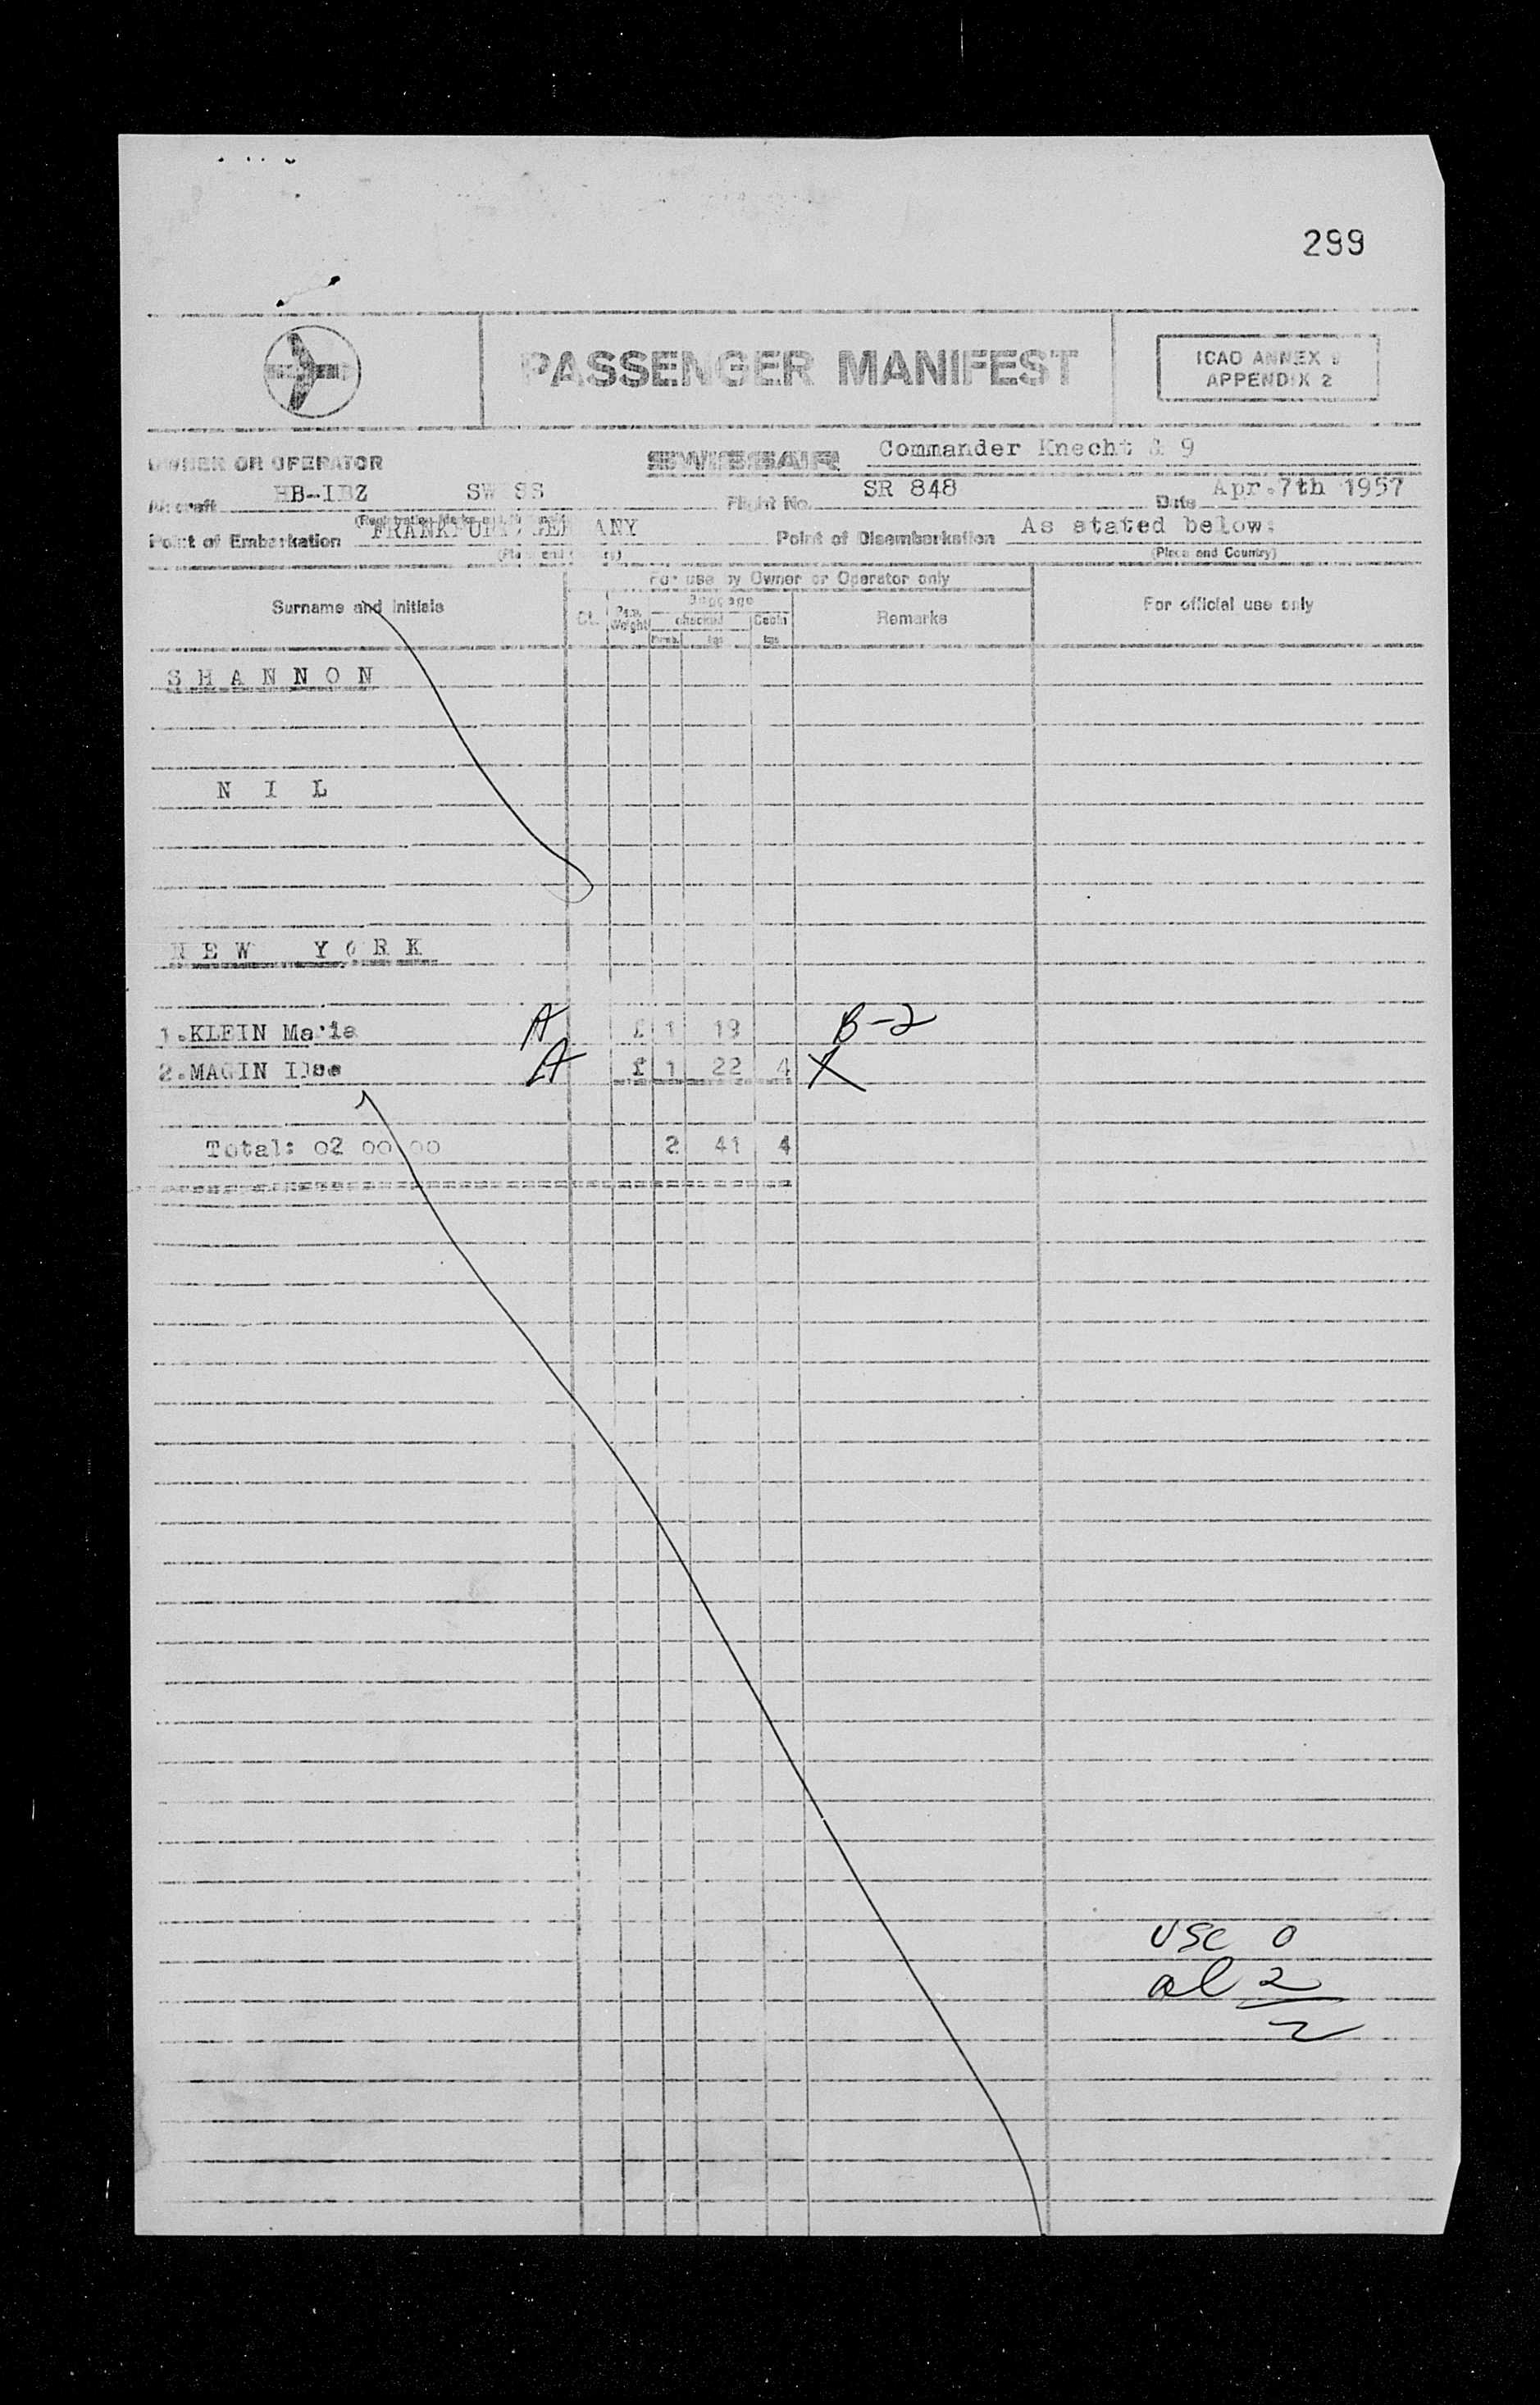 299
PASSENGER MANIFEST
ICAO ANNEX 9
APPENDIX 2
OWNER OR OPERATOR SWISSAIR Commander Knecht & 9
Aircraft HB-IBZ SWISS Flight No. SR 848 Date Apr.7th 1957
(Registration Marks and Nationality)
Point of Embarkation FRANKFURT, GERMANY Point of Disembarkation As stated below:
(Place and Country) (Place and Country)
For use by Owner or Operator only
Surname and initials Cl. Pass. Weight Baggage Remarks For official use only
checked Cabin
Numb. kgs kgs
SHANNON
NIL
NEW YORK
1.KLEIN Maria A £ 1 19 B-2
2.MAGIN Ilse A £ 1 22 4 X
Total: 02 00 00 2 41 4
USC 0
al 2
2